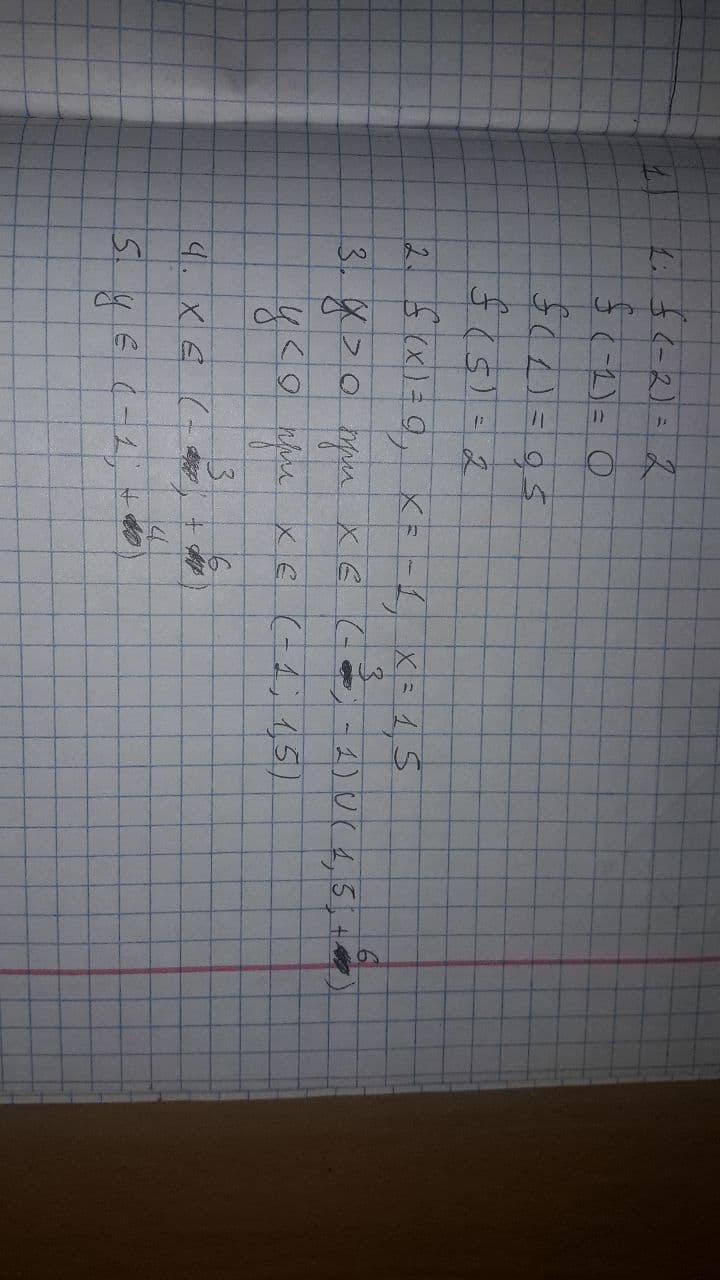 1) 1. f(-2) = 2
f(-1) = 0
f(1) = 0,5
f(5) = 2
2. f(x) = 0, x = -1, x = 1,5
3. y > 0 при x ∈ (-3; -1) ∪ (1,5; +6)
y < 0 при x ∈ (-1; 1,5)
4. x ∈ (-3; +6)
5. y ∈ (-1; +4)